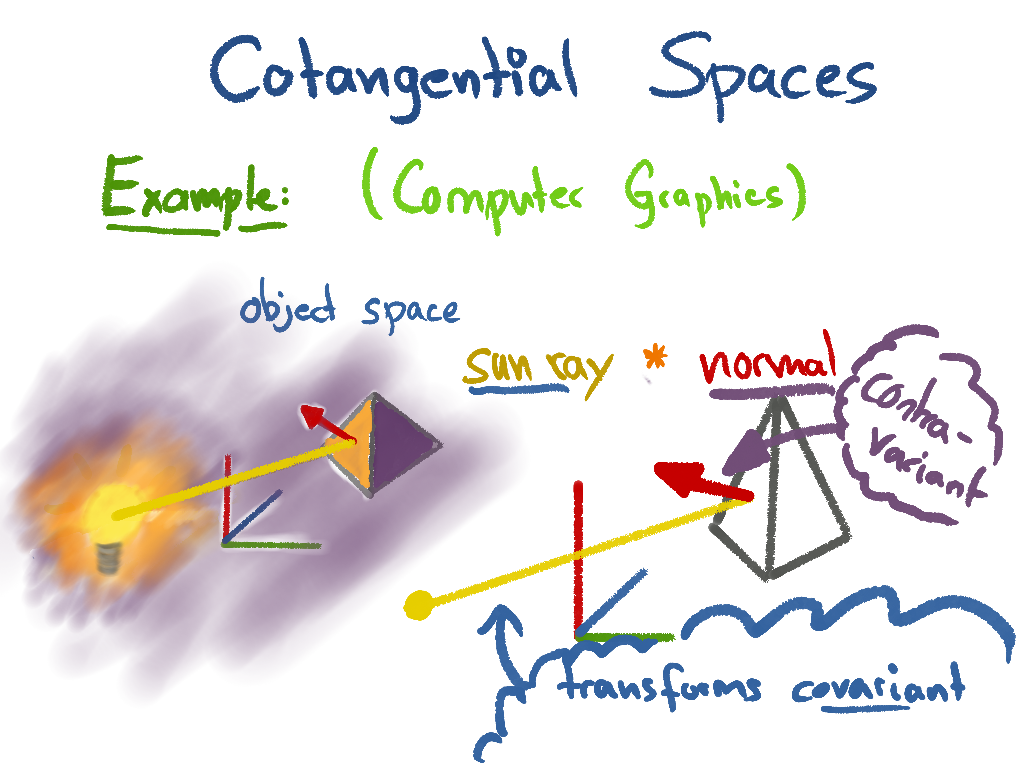 Cotangential Spaces
Example: (Computer Graphics)
object space
sun ray * normal
contra-
variant
transforms covariant